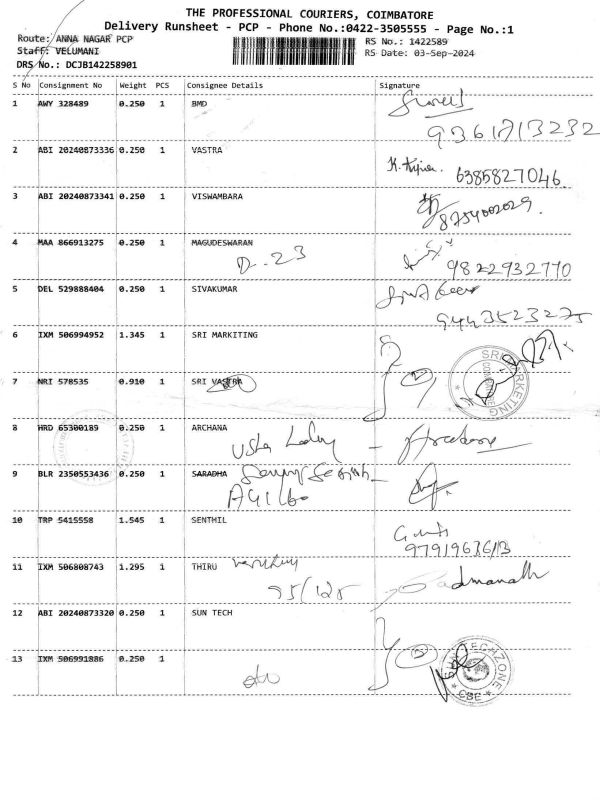 THE PROFESSIONAL COURIERS, COIMBATORE
Delivery Runsheet - PCP - Phone No.:0422-3505555 - Page No.:1
Route: ANNA NAGAR PCP RS No.: 1422589
Staff: VELUMANI RS Date: 03-Sep-2024
DRS No.: DCJB142258901
S No Consignment No Weight PCS Consignee Details Signature
1 AWY 328489 0.250 1 BMD
9361713232
2 ABI 20240873336 0.250 1 VASTRA
6385827046
3 ABI 20240873341 0.250 1 VISWAMBARA
8754002029
4 MAA 866913275 0.250 1 MAGUDESWARAN
D-23 9822932770
5 DEL 529888404 0.250 1 SIVAKUMAR
9443523275
6 IXM 506994952 1.345 1 SRI MARKITING
SRI MARKETING
7 NRI 578535 0.910 1 SRI VASTRA
8 HRD 65300189 0.250 1 ARCHANA
Usha
9 BLR 2350553436 0.250 1 SARADHA
10 TRP 5415558 1.545 1 SENTHIL
11 IXM 506808743 1.295 1 THIRU
95/125 Padmanath
12 ABI 20240873320 0.250 1 SUN TECH
13 IXM 506991886 0.250 1
SUN TECHZONE
CBE